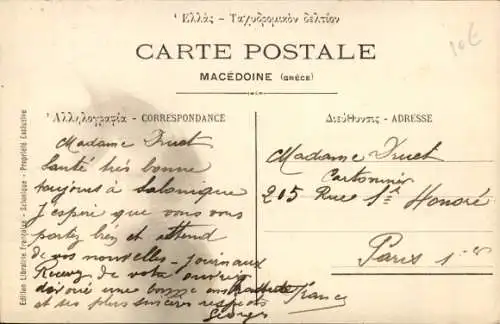 Ἑλλὰς - Ταχυδρομικὸν δελτίον
CARTE POSTALE
MACÉDOINE (GRÈCE)
Ἀλληλογραφία - CORRESPONDANCE
Madame Druet
Santé très bonne
toujours à Salonique
J'espère que vous vous
portez bien et attend
de vos nouvelles - journaux
Recevez de votre ouvrier
dévoué une bonne
et ses plus sincères respects
Georges
Διεύθυνσις - ADRESSE
Madame Druet
Cartonnier
205 Rue St Honoré
Paris 1er
France
10€
Edition Librairie Française - Salonique - Propriété Exclusive